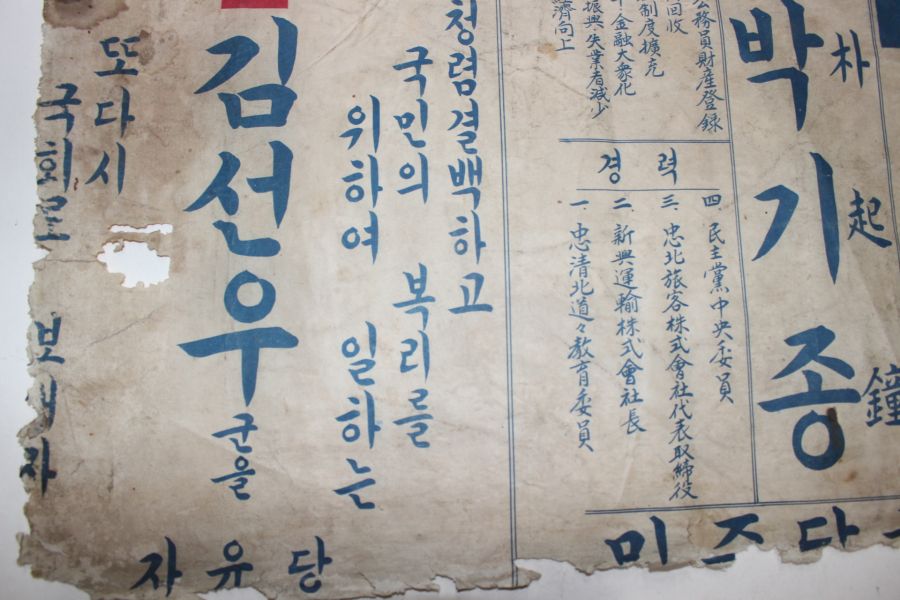 박기종
朴起鐘
公務員財産登錄
回收
制度擴充
金融大衆化
振興失業者減少
濟向上
경력
四 民主黨中央委員
三 忠北旅客株式會社代表取締役
二 新興運輸株式會社長
一 忠清北道々教育委員
민주당
청렴결백하고
국민의 복리를
위하여 일하는
김선우 군을
또다시
국회로 보내자
자유당